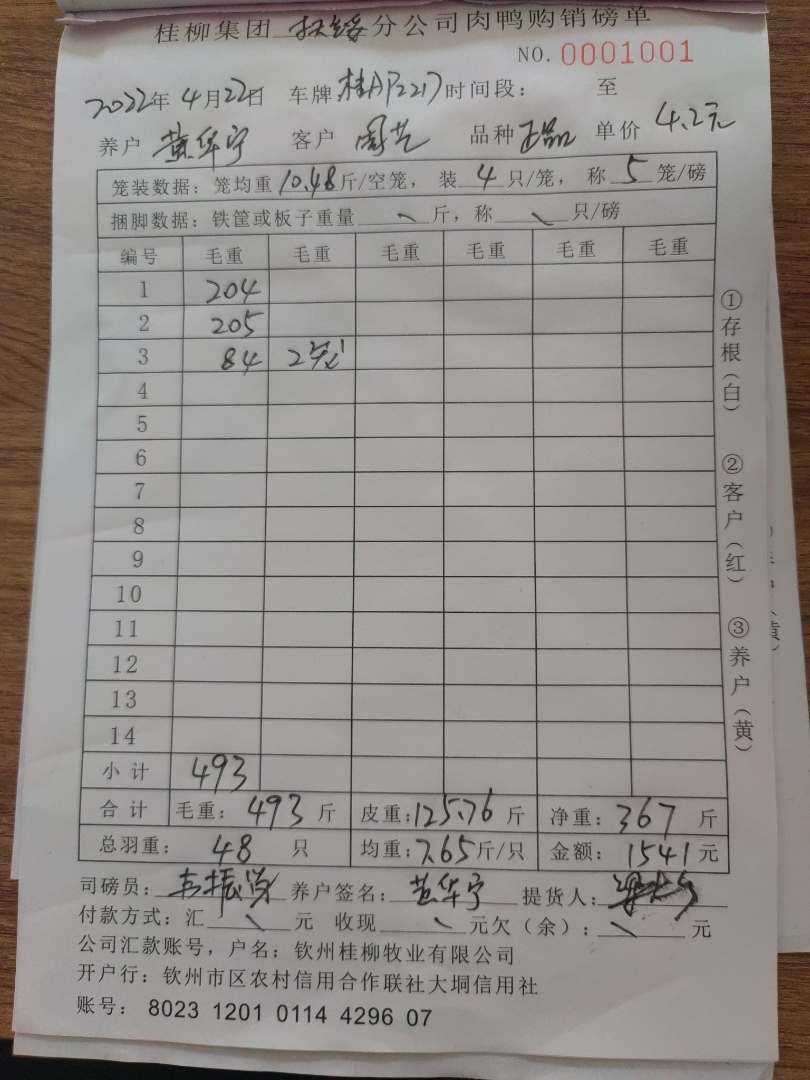 桂柳集团 扶绥 分公司肉鸭购销磅单
NO. 0001001
2022年 4月22日 车牌:桂AP2217 时间段: 至
养户 黄华宁 客户 周艺 品种 正品 单价 4.2元
笼装数据: 笼均重 10.48 斤/空笼, 装 4 只/笼, 称 5 笼/磅
捆脚数据: 铁筐或板子重量 \ 斤, 称 \ 只/磅
编号 毛重 毛重 毛重 毛重 毛重 毛重
1 204
2 205
3 84 2笼
4
5
6
7
8
9
10
11
12
13
14
小计 493
合计 毛重: 493 斤 皮重: 125.76 斤 净重: 367 斤
总羽重: 48 只 均重: 7.65 斤/只 金额: 1541 元
司磅员: 韦振 养户签名: 黄华宁 提货人:
付款方式: 汇 \ 元 收现 \ 元欠(余): \ 元
公司汇款账号, 户名: 钦州桂柳牧业有限公司
开户行: 钦州市区农村信用合作联社大垌信用社
账号: 8023 1201 0114 4296 07
①存根(白)
②客户(红)
③养户(黄)